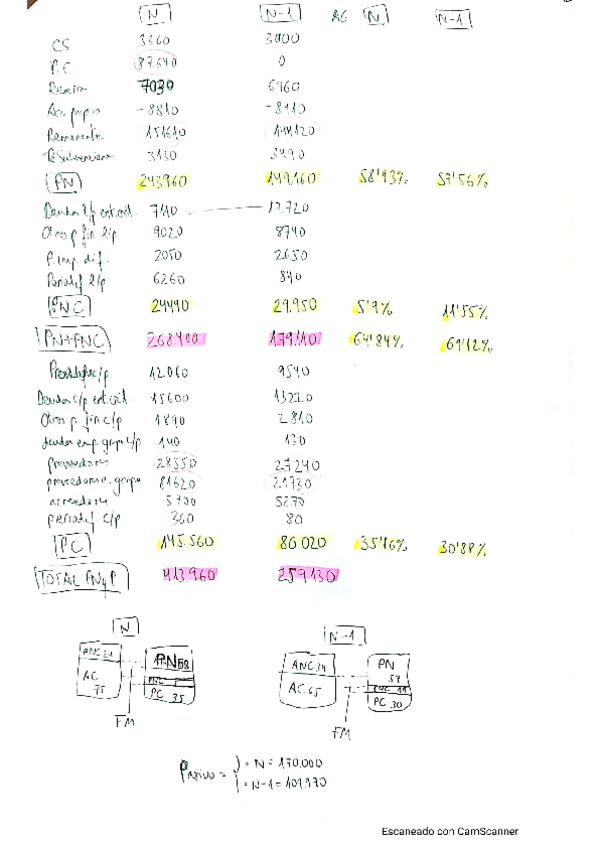 N N-1 AG N N-1
CS 3360 3000
P.E. 87.640 0
Reservas 7030 6960
Acc. propias -8810 -8410
Remanente 151610
R. Subvenciones 3130 3490
PN 243960 149.160 58'93% 57'56%
Deudas l/p ent. cdt. 7110 17.720
Otros p. fin l/p 9020 8740
P. imp. dif. 2050 2650
Periodif l/p 6260 840
PNC 24440 29.950 5'9% 11'55%
PN+PNC 268400 179.110 64'84% 69'12%
c/p 12060 9540
Deudas c/p ent. cdt. 15600 13220
Otros p. fin c/p 1890 2810
deudas emp. grupo c/p 140 130
proveedores 28550 27240
proveedores e. grupo 81620 21730
acreedores 5700 5270
periodif c/p 360 80
PC 145.560 80020 35'16% 30'88%
TOTAL PN y P 413.960 259130
N N-1
ANC PN 58 ANC 34 PN 57
AC 75 PNC AC 65 PNC 11
PC 35 PC 30
FM FM
Pasivo = · N = 170.000
· N-1 = 109.970
Escaneado con CamScanner